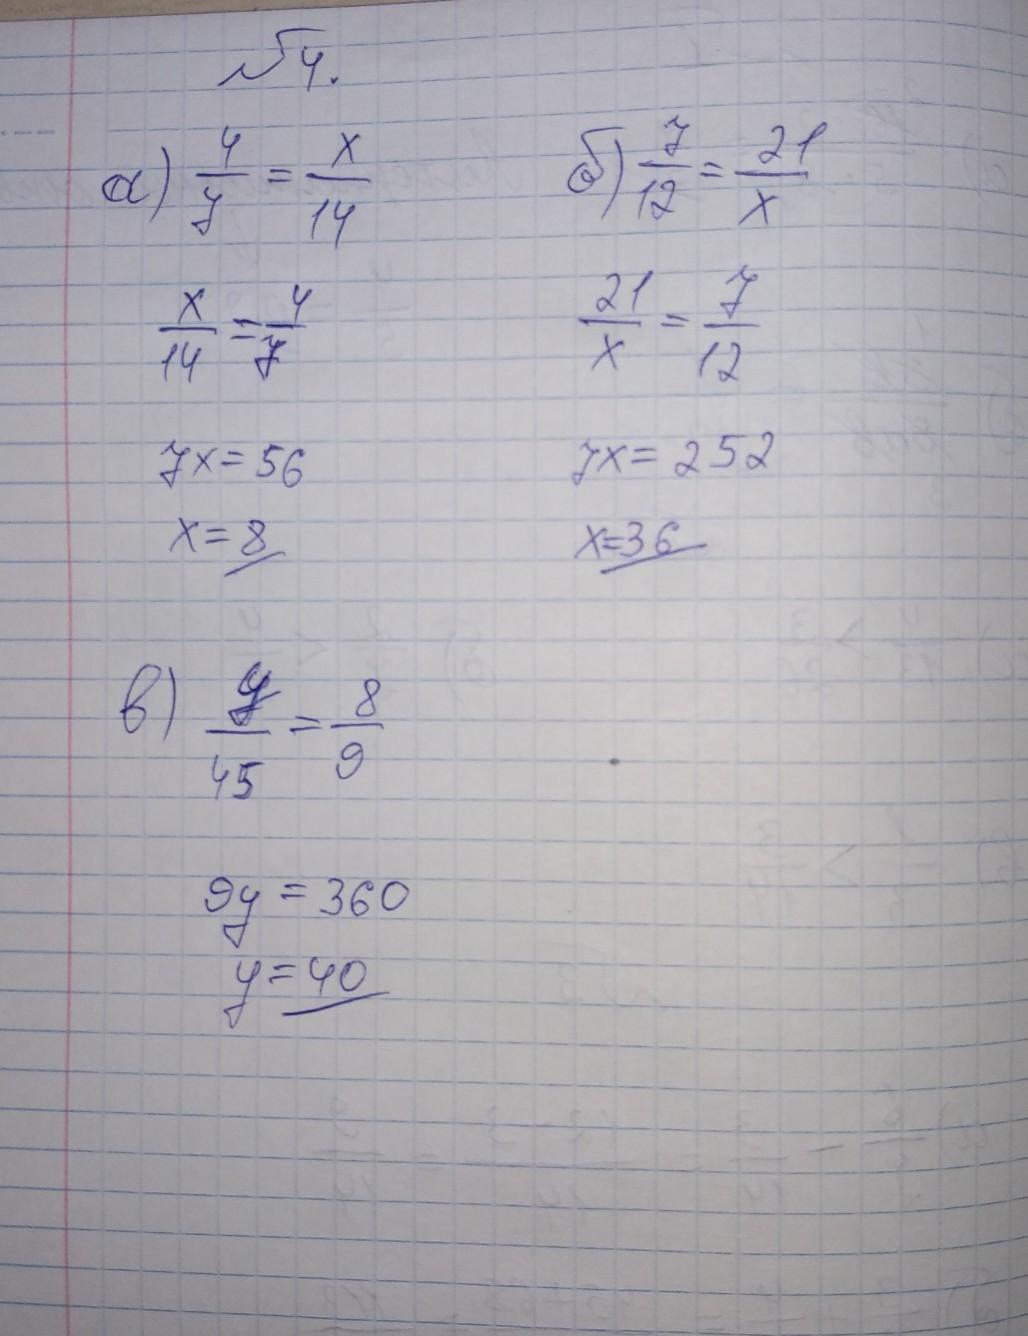 №4.
а) 4/7 = x/14
x/14 = 4/7
7x = 56
x = 8
б) 7/12 = 21/x
21/x = 7/12
7x = 252
x = 36
в) y/45 = 8/9
9y = 360
y = 40